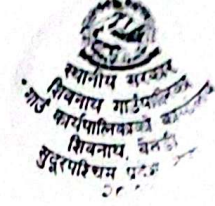 स्थानीय सरकार
शिवनाथ गाउँपालिका
गाउँ कार्यपालिकाको कार्यालय
शिवनाथ, बैतडी
सुदूरपश्चिम प्रदेश